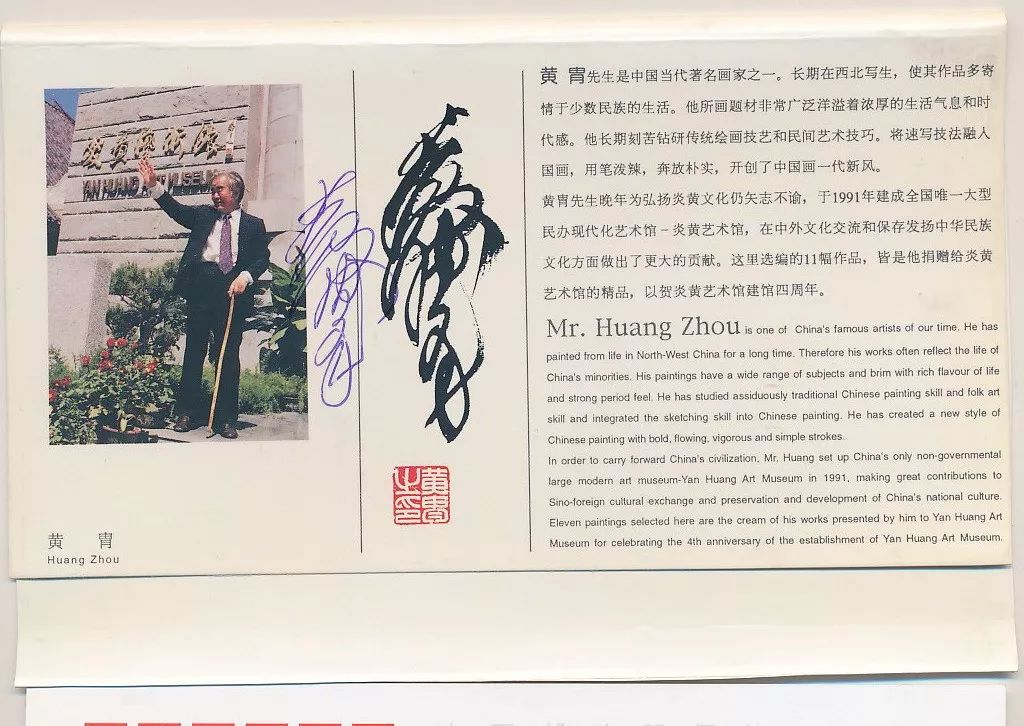 YAN HUANG ART MUSEUM
黄 胄
Huang Zhou
黄胄之印
黄 胄先生是中国当代著名画家之一。长期在西北写生，使其作品多寄
情于少数民族的生活。他所画题材非常广泛洋溢着浓厚的生活气息和时
代感。他长期刻苦钻研传统绘画技艺和民间艺术技巧。将速写技法融人
国画，用笔泼辣，奔放朴实，开创了中国画一代新风。
黄胄先生晚年为弘扬炎黄文化仍矢志不谕，于1991年建成全国唯一大型
民办现代化艺术馆－炎黄艺术馆，在中外文化交流和保存发扬中华民族
文化方面做出了更大的贡献。这里选编的11幅作品，皆是他捐赠给炎黄
艺术馆的精品，以贺炎黄艺术馆建馆四周年。
Mr. Huang Zhou is one of China's famous artists of our time. He has
painted from life in North-West China for a long time. Therefore his works often reflect the life of
China's minorities. His paintings have a wide range of subjects and brim with rich flavour of life
and strong period feel. He has studied assiduously traditional Chinese painting skill and folk art
skill and integrated the sketching skill into Chinese painting. He has created a new style of
Chinese painting with bold, flowing, vigorous and simple strokes.
In order to carry forward China's civilization, Mr. Huang set up China's only non-governmental
large modern art museum-Yan Huang Art Museum in 1991, making great contributions to
Sino-foreign cultural exchange and preservation and development of China's national culture.
Eleven paintings selected here are the cream of his works presented by him to Yan Huang Art
Museum for celebrating the 4th anniversary of the establishment of Yan Huang Art Museum.